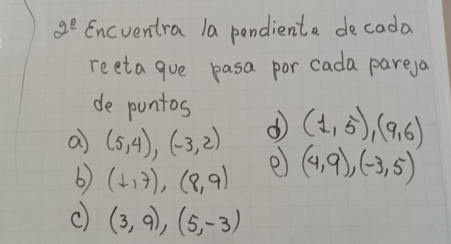 2º Encuentra la pendiente de cada
reeta que pasa por cada pareja
de puntos
a) (5,4), (-3,2)
b) (1,7), (8,9)
c) (3,9), (5,-3)
d) (1,5),(9,6)
e) (4,9),(-3,5)